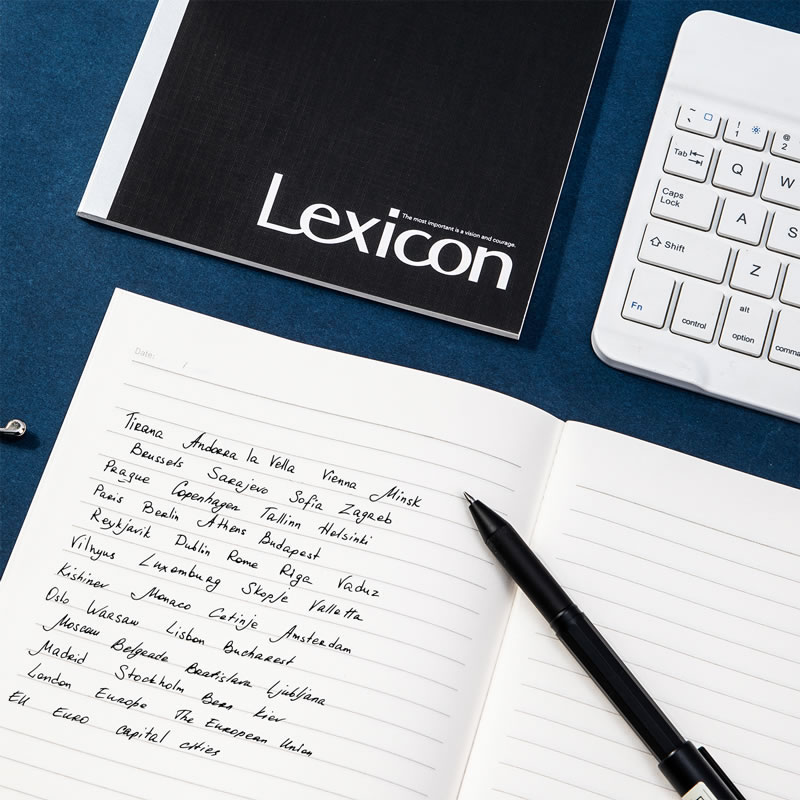 Lexicon
The most important is a vision and courage.
~
`
!
1
@
2
Tab
Q
W
Caps
Lock
A
S
Shift
Z
Fn
control
alt
option
Date:
/
Tirana Andorra la Vella Vienna Minsk
Brussels Sarajevo Sofia Zagreb
Prague Copenhagen Tallinn Helsinki
Paris Berlin Athens Budapest
Reykjavik Dublin Rome Riga Vaduz
Vilnyus Luxemburg Skopje Valletta
Kishinev Monaco Cetinje Amsterdam
Oslo Warsaw Lisbon Bucharest
Moscow Belgrade Bratislava Ljubljana
Madrid Stockholm Bern Kiev
London Europe The European Union
EU Euro capital cities